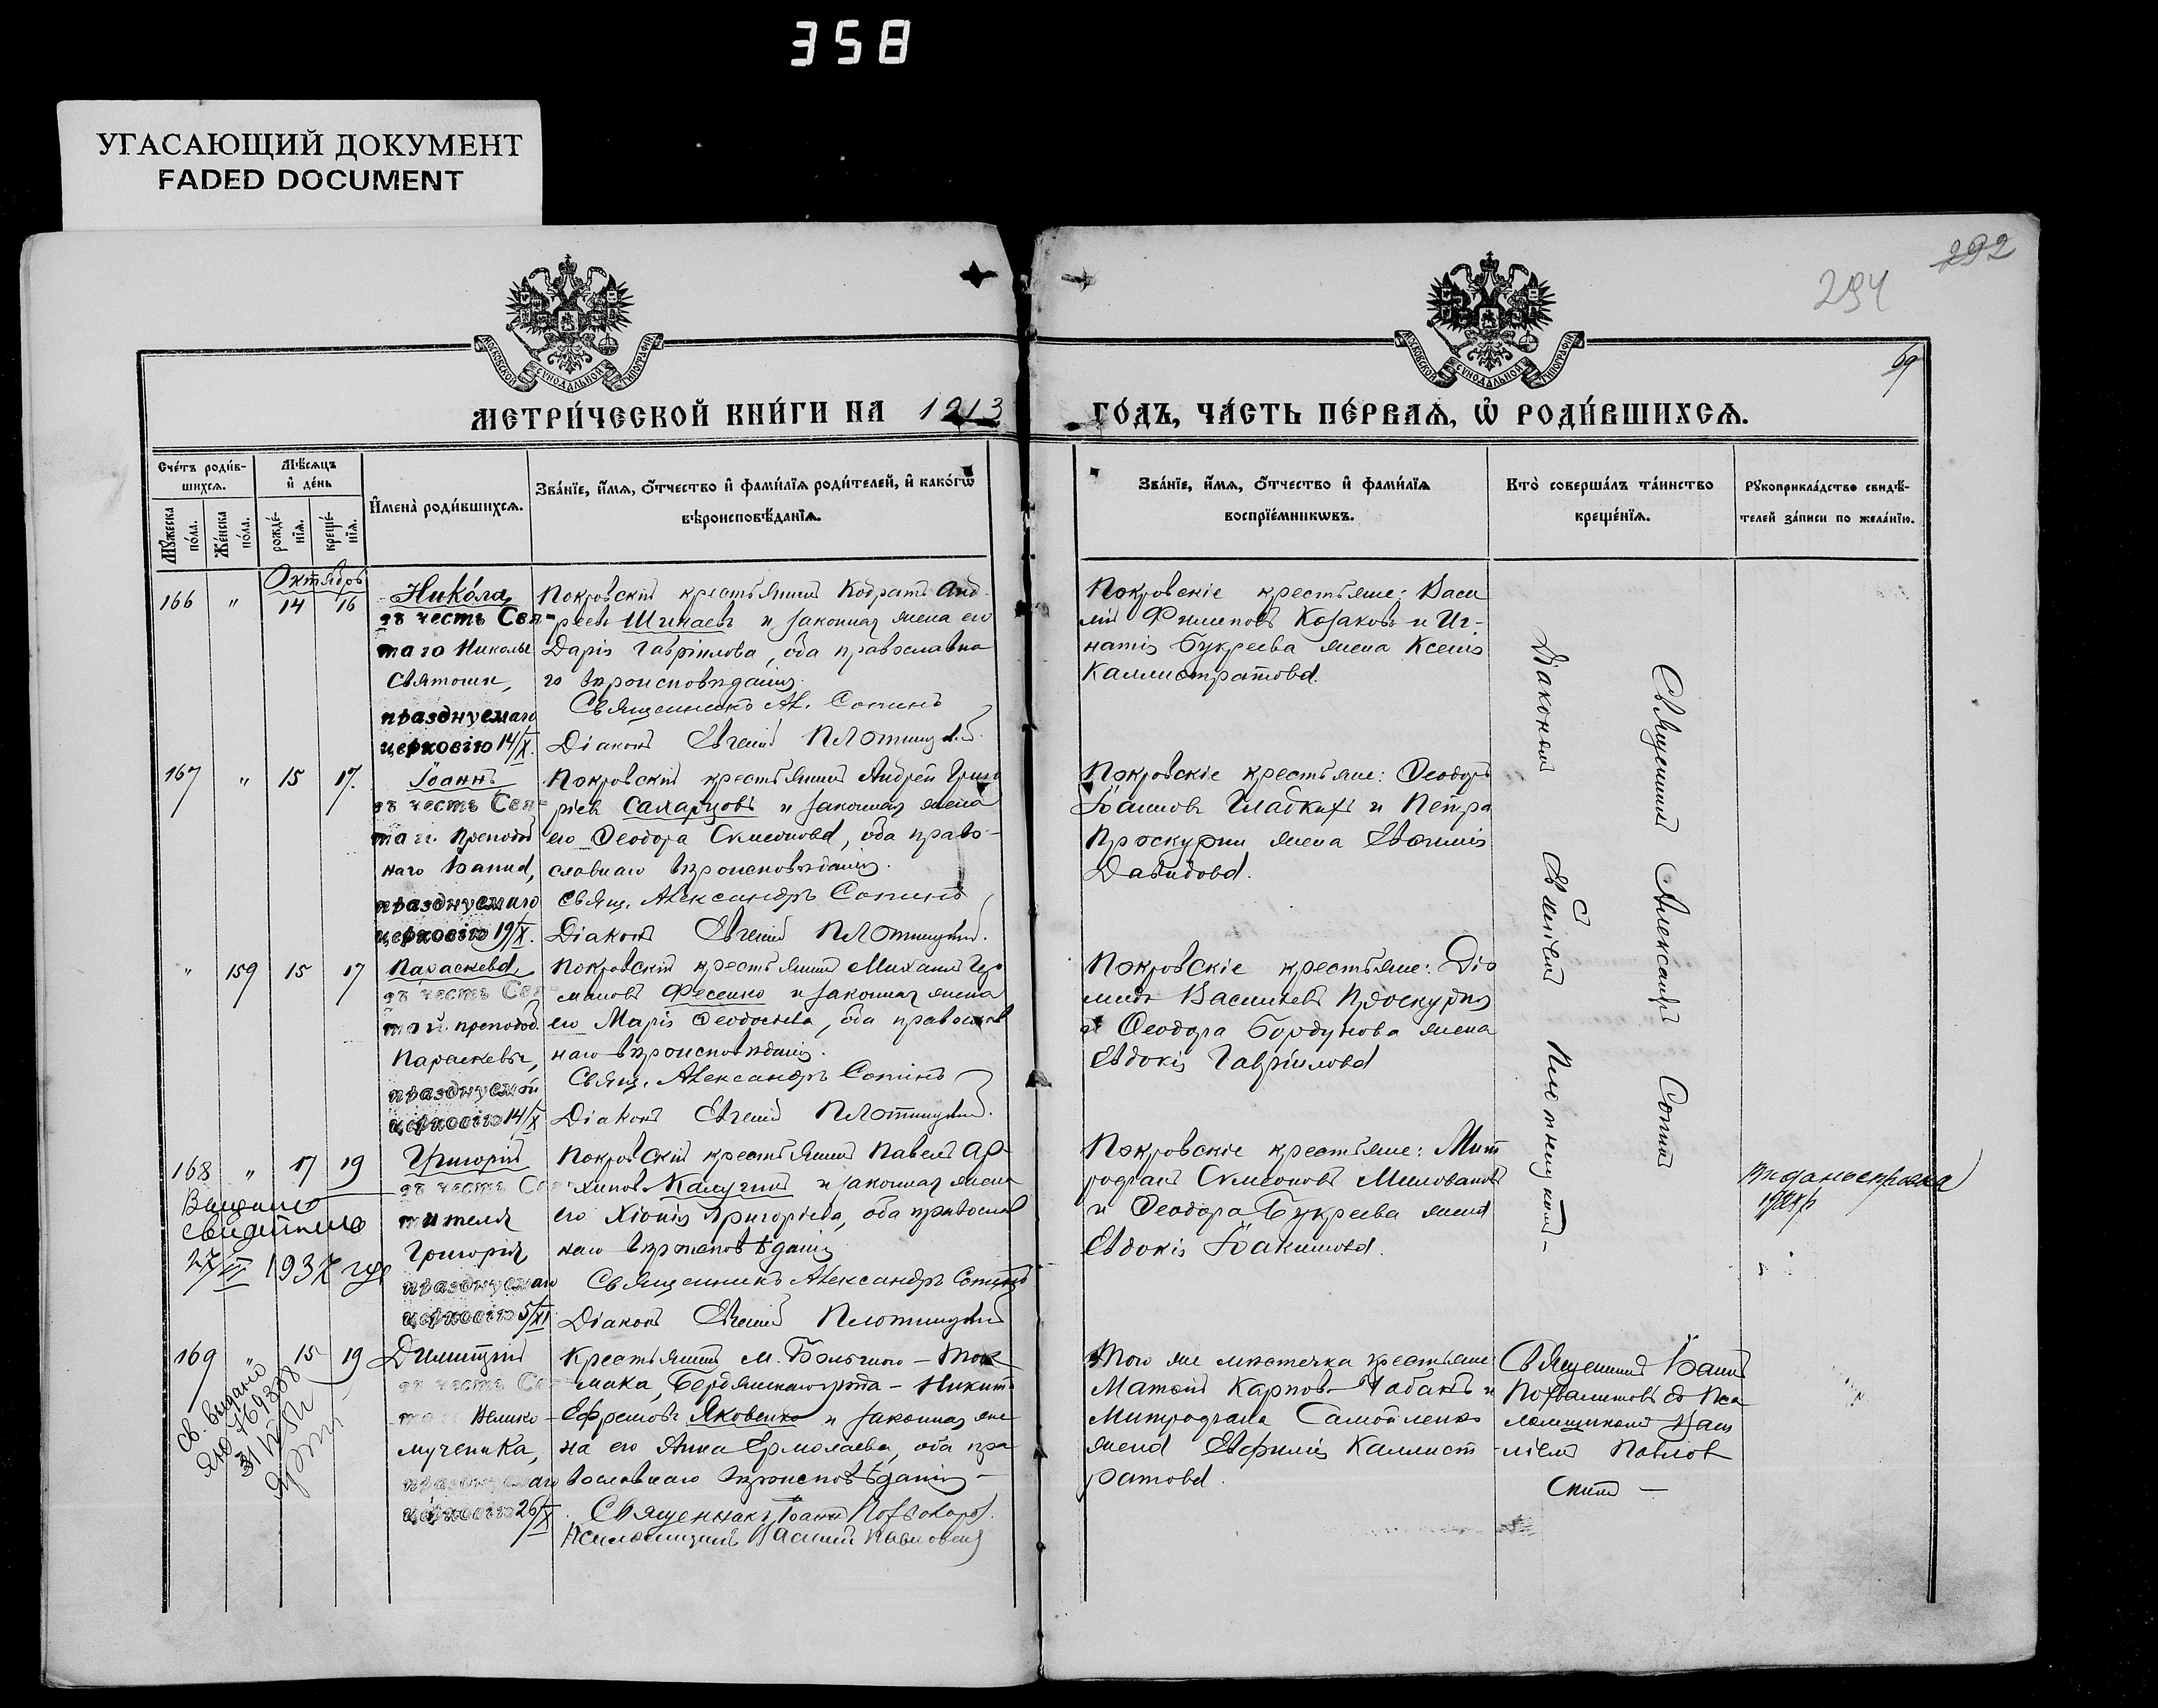 358
УГАСАЮЩИЙ ДОКУМЕНТ
FADED DOCUMENT
292
294
69
МОСКОВСКОЙ СѴНОДАЛЬНОЙ ТИПОГРАФІИ
МОСКОВСКОЙ СѴНОДАЛЬНОЙ ТИПОГРАФІИ
МЕТРИ́ЧЕСКОЙ КНИ́ГИ НА 1913 ГО́ДЪ, ЧА́СТЬ ПЕ́РВАѦ, Ѡ҆ РОДИ́ВШИХСѦ.
Сче́тъ роди́в-
шихсѧ.
Мꙋ́жеска по́ла.
Же́нска по́ла.
Мѣ́сѧцъ
и҆ де́нь
рожде́-
нїѧ.
креще́-
нїѧ.
И҆мена̀ роди́вшихсѧ.
Зва́нїе, и҆́мѧ, ѻ҆́тчество и҆ фами́лїѧ роди́телей, и҆ како́гѡ
вѣроисповѣ́данїѧ.
Зва́нїе, и҆́мѧ, ѻ҆́тчество и҆ фами́лїѧ
воспрїе́мникѡвъ.
Кто̀ соверша́лъ та́инство
креще́нїѧ.
Рꙋкоприкла́дство свидѣ́-
телей за́писи по жела́нїю.
Октябрь
166 " 14 16
Никола,
въ честь Свя-
таго Николы
Святоши,
празднуемаго
церковію 14/X.
Покровскій крестьянинъ Кодратъ Анд
реевъ Шинаевъ и законная жена его
Дарія Гавріилова, оба православна
го вѣроисповѣданія.
Священникъ Ал. Сопинъ
Діаконъ Евгеній Плотницкій.
Покровскіе крестьяне: Васи
лій Филиповъ Козаковъ и Иг-
натія Букреева жена Ксенія
Каллистратова.
167 " 15 17.
Іоаннъ
въ честь Свя-
таго Преподоб
наго Іоанна,
празднуемаго
церковію 19/X.
Покровскій крестьянинъ Андрей Григо
ріевъ Сахарцовъ и законная жена
его Ѳеодора Симеонова, оба право-
славнаго вѣроисповѣданія.
Свящ. Александръ Сопинъ
Діаконъ Евгеній Плотницкій.
Покровскіе крестьяне: Ѳеодоръ
Іоанновъ Гладкихъ и Петра
Проскурни жена Евѳимія
Давидова.
" 159 15 17
Параскева,
въ честь Свя-
той преподоб
Параскевы,
празднуемой
церковію 14/X
Покровскій крестьянинъ Михаилъ
Фесенко и законная жена
его Марія Ѳеодосіева, оба православ
наго вѣроисповѣданія.
Свящ. Александръ Сопинъ
Діаконъ Евгеній Плотницкій.
Покровскіе крестьяне: Діо
мидъ Васильевъ Проскурня
и Ѳеодора Бордунова жена
Евдокія Гавріилова
168 " 17 19
Григорій
въ честь Свя-
тителя
Григорія
празднуемаго
церковію 5/XI
Покровскій крестьянинъ Павелъ Ар-
хиповъ Калугинъ и законная жена
его Хіонія Григоріева, оба православ
наго вѣроисповѣданія
Священникъ Александръ Сопинъ
Діаконъ Евгеній Плотницкій
Покровскіе крестьяне: Мит
рофанъ Симеоновъ Миловановъ
и Ѳеодора Букреева жена
Евдокія Іоакимова.
Выдано
27/III 1937 году
169 " 15 19
Димитрій
въ честь Свя-
таго Велико-
мученика,
празднуемаго
церковію 26/X
Крестьянинъ м. Большого-Ток
мака, Бердянскаго уѣзда - Никита
Ефремовъ Яковенко и законная же
на его Анна Ермолаева, оба пра
вославнаго вѣроисповѣданія -
Священникъ Іоаннъ
Псаломщикъ Василий
Того же мѣстечка крестьяне:
Матѳей Карповъ Чабанъ и
Митрофана Самойленко
жена Евфимія Каллист
ратова.
Священникъ Александръ Сопинъ
Діакономъ Евгеніемъ Плотницкимъ -
Священникъ Іоаннъ
съ Пса
ломщикомъ Васи
ліемъ Павлов
скимъ -
св. выдано